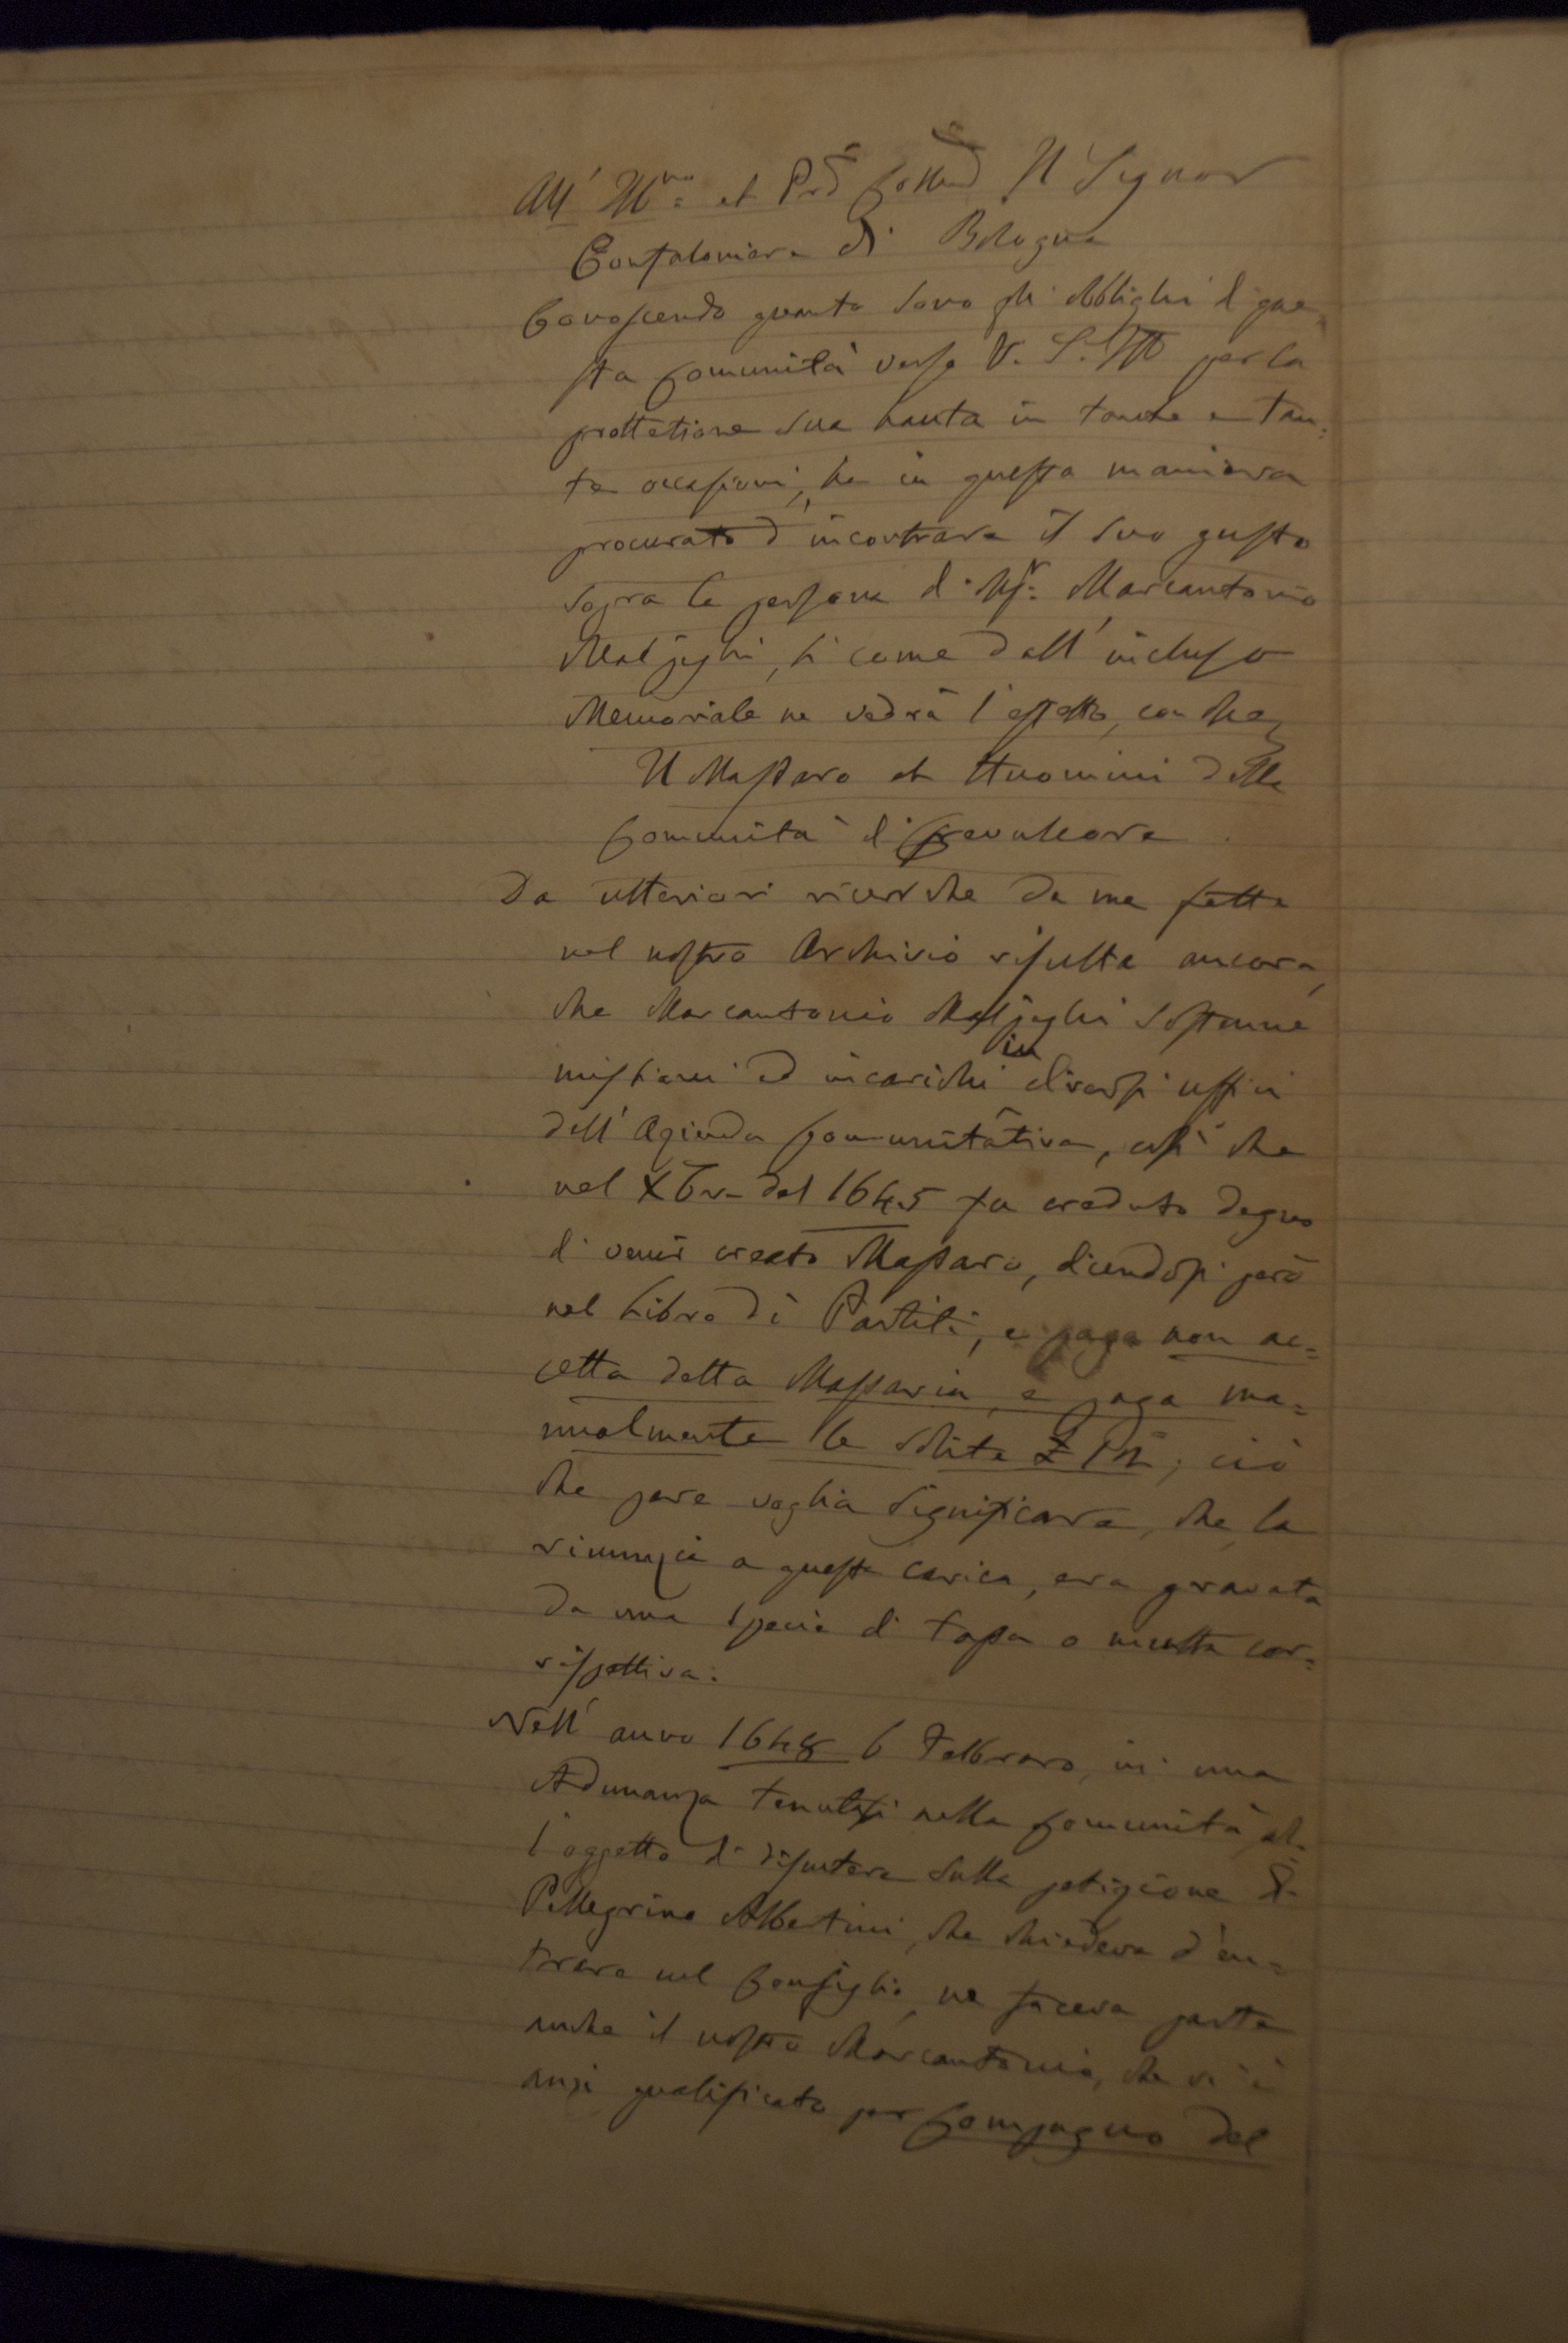 All' Ill.mo et Pro Colend Il Signor
Confaloniere di Bologna
Conoscendo quanto sono gli obblighi di que-
sta Comunità verso V. S. Ill per la
prottetione sua hauta in tante e tan-
te occasioni, ha in questa maniera
procurato d'incontrare il suo gusto
sopra la persona di Msr. Marcantonio
Malpighi, si come dall'incluso
Memoriale ne vedrà l'effetto, con che
Il Massaro et Huomini della
Comunità di Crevalcore
Da ulteriori ricerche da me fatte
nel nostro Archivio risulta ancora,
che Marcantonio Malpighi sostenne
missioni ed incarichi in diversi uffici
dell'Azienda Comunitativa, così che
nel Xbre del 1645 fu creduto degno
di venir creato Massaro, dicendosi però
nel Libro di Partiti, e paga non ac=
cetta detta Massaria, e paga ma=
nualmente le solite £ ; ciò
che pare voglia significare, che la
rinunzia a questa carica, era gravata
da una specie di tassa o multa cor=
rispettiva.
Nell'anno 1648 6 Febbraro, in una
Adunanza tenutasi nella Comunità al-
l'oggetto di disputare sulla petizione di
Pellegrino Albertini, che chiedeva d'en=
trare nel Consiglio, ne faceva parte
anche il nostro Marcantonio, che vi è
anzi qualificato per Compagno del